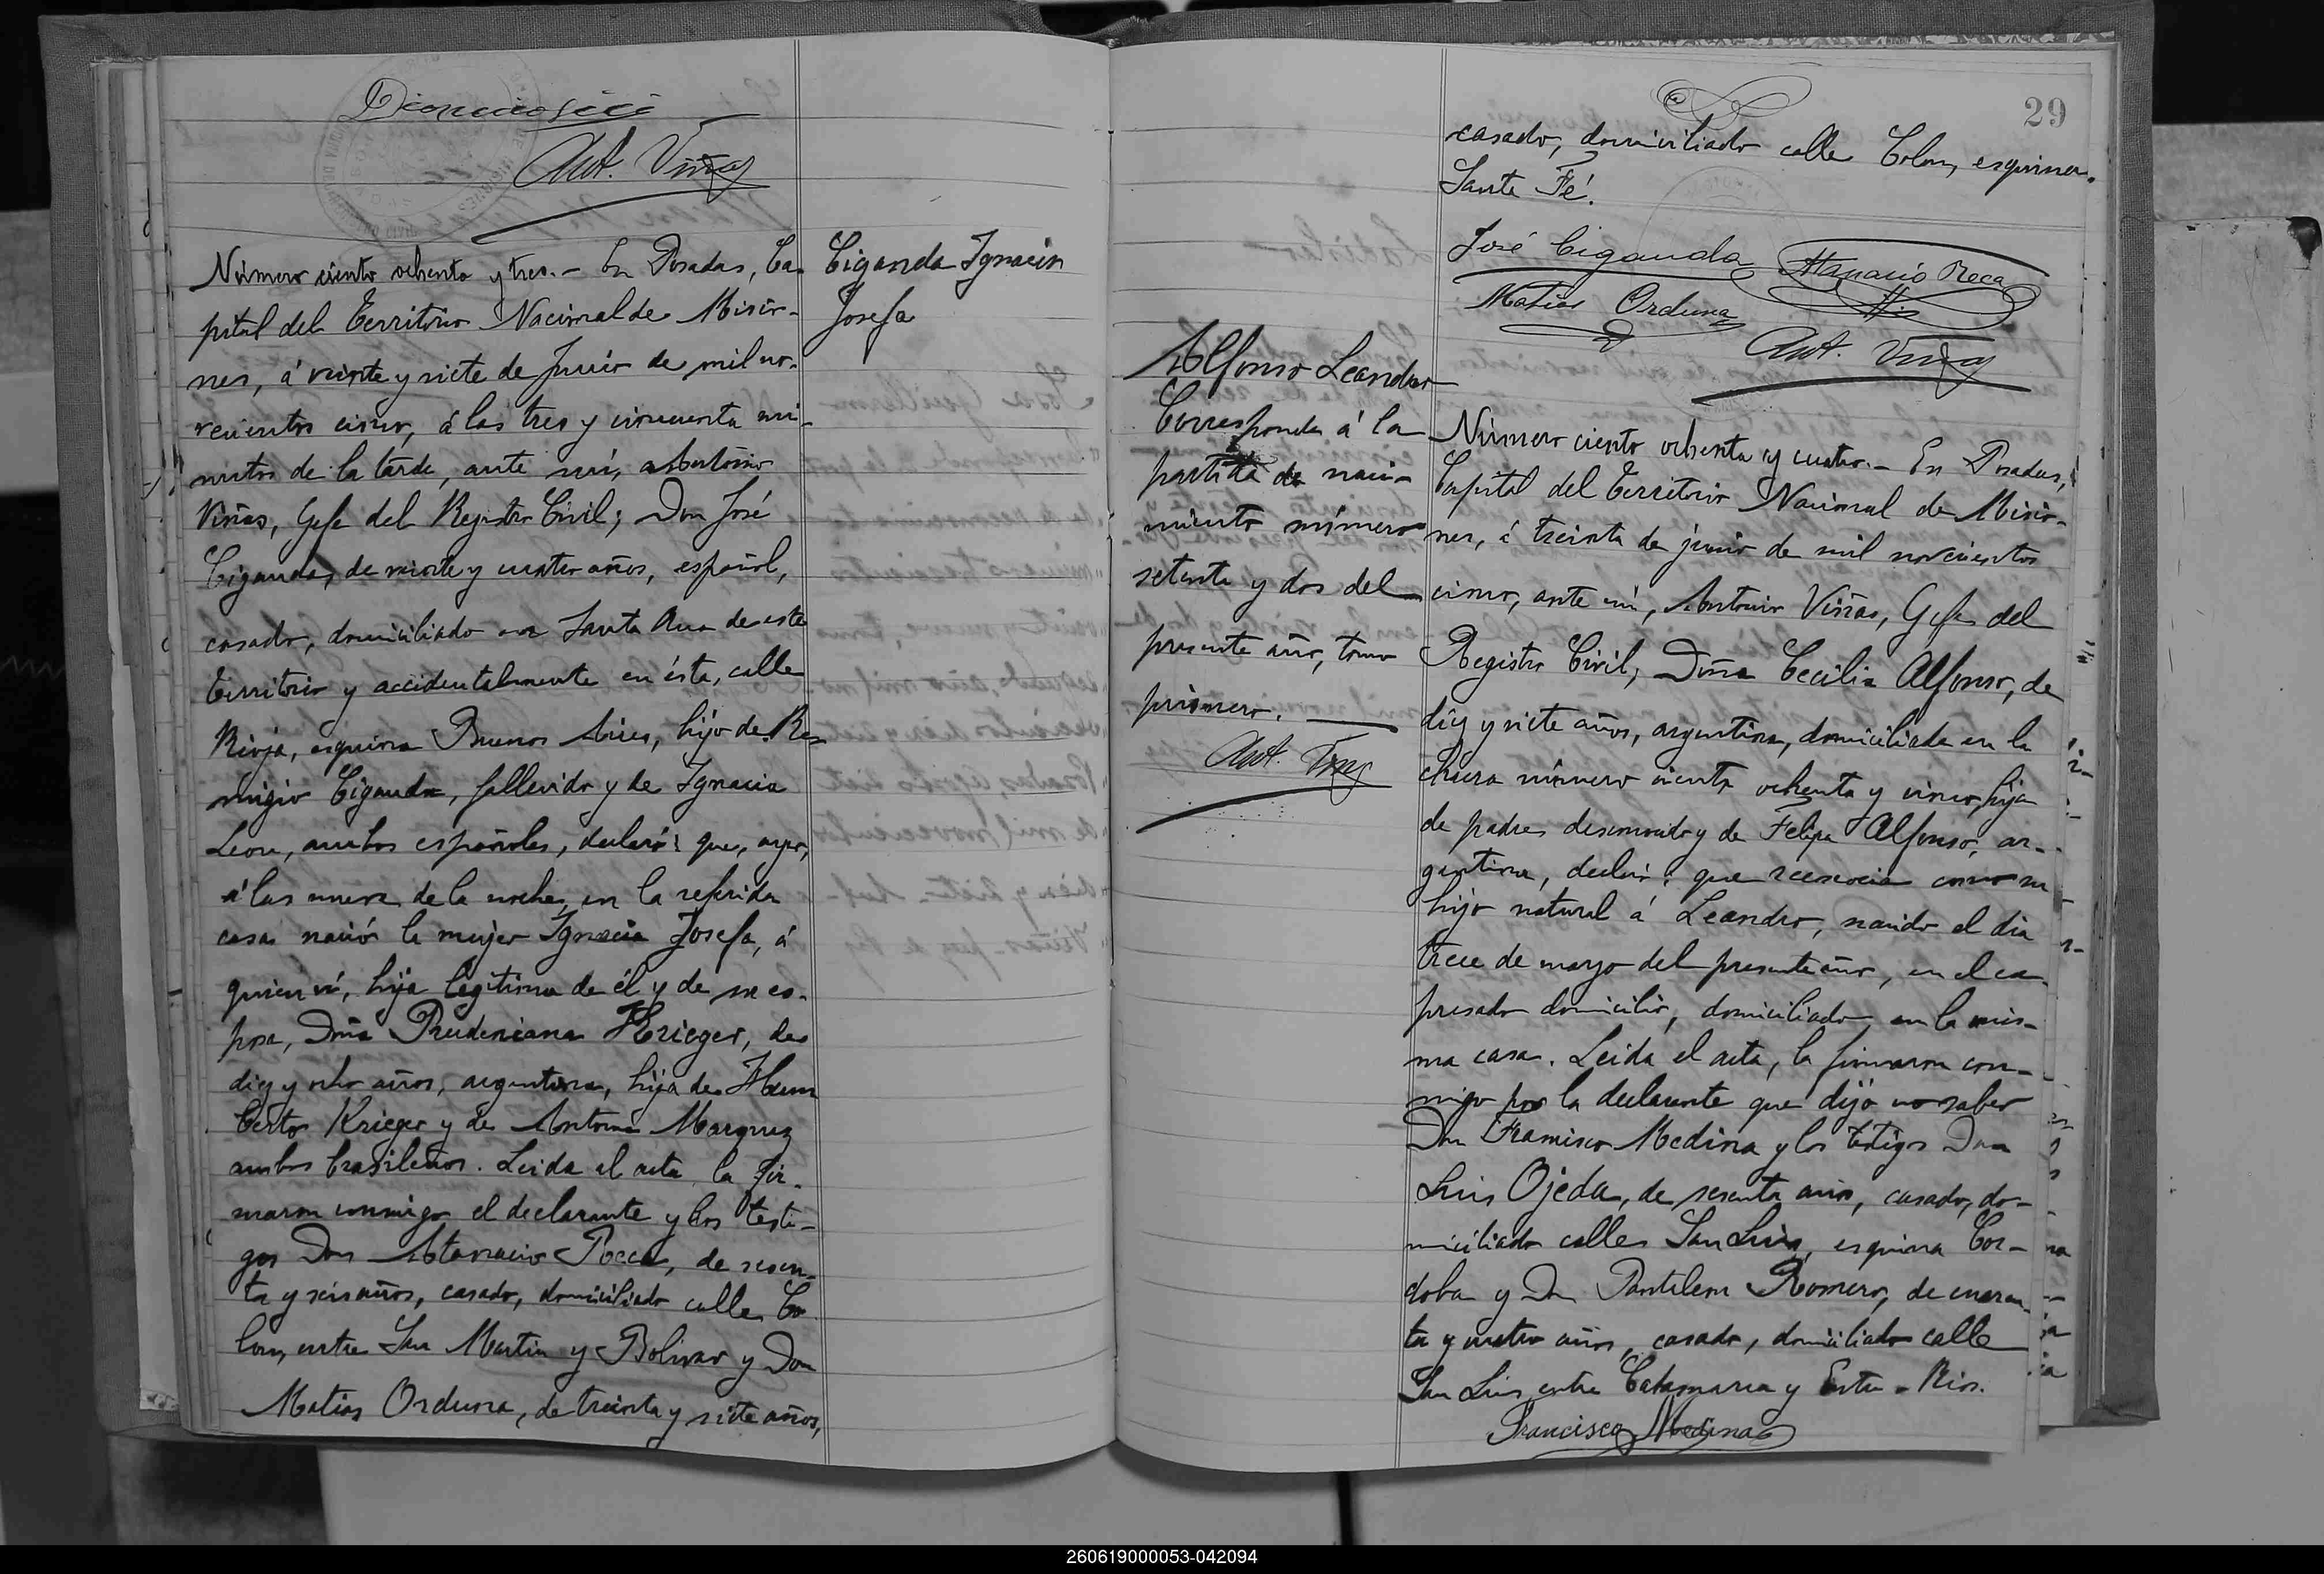 Ant. Viñas
Número ciento ochenta y tres.- En Posadas, Ca-
pital del Territorio Nacional de Misio-
nes, á veinte y siete de Junio de mil no-
vecientos cinco, á las tres y cincuenta mi-
nutos de la tarde, ante mí, Antonio
Viñas, Gefe del Registro Civil; Don José
Ciganda, de veinte y cuatro años, español,
casado, domiciliado en Santa Ana de este
Territorio y accidentalmente en ésta, calle
Rioja, esquina Buenos Aires, hijo de Re-
migio Ciganda, fallecido y de Ignacia
Leon, ambos españoles, declaró: que, ayer,
á las nueve de la noche, en la referida
casa nació la mujer Ignacia Josefa, á
quien ví, hija legítima de él y de su es-
posa, Doña Prudenciana Krieger, de
diez y ocho años, argentina, hija de Hum
berto Krieger y de Antonia Marquez
ambos brasileños. Leida el acta, la fir-
maron conmigo el declarante y los testi-
gos Don Atanacio Roca, de sesen-
ta y seis años, casado, domiciliado calle Co-
lon, entre San Martin y Bolivar y Don
Matias Orduna, de treinta y siete años,
Ciganda Ignacia
Josefa
29
casado, domiciliado calle Colon, esquina
Santa Fé.
José Ciganda Atanacio Roca
Matias Orduna
Ant. Viñas
Alfonso Leandro
Corresponde á la
partida de naci-
miento número
setenta y dos del
presente año, tomo
primero.
Ant. Viñas
Número ciento ochenta y cuatro.- En Posadas,
Capital del Territorio Nacional de Misio-
nes, á treinta de junio de mil novecientos
cinco, ante mí, Antonio Viñas, Gefe del
Registro Civil, Doña Cecilia Alfonso, de
diez y siete años, argentina, domiciliada en la
chacra número ciento ochenta y cinco, hija
de padre desconocido y de Felipa Alfonso, ar-
gentina, declaró: que reconocia como su
hijo natural á Leandro, nacido el dia
trece de marzo del presente año, en el ex-
presado domicilio, domiciliado en la mis-
ma casa. Leida el acta, la firmaron con-
migo por la declarante que dijo no saber
Don Francisco Medina y los testigos Don
Luis Ojeda, de sesenta años, casado, do-
miciliado calles San Luis, esquina Cor-
doba y Don Pantaleon Romero, de cuaren-
ta y cuatro años, casado, domiciliado calle
San Luis entre Catamarca y Entre-Rios.
Francisco Medina
260619000053-042094